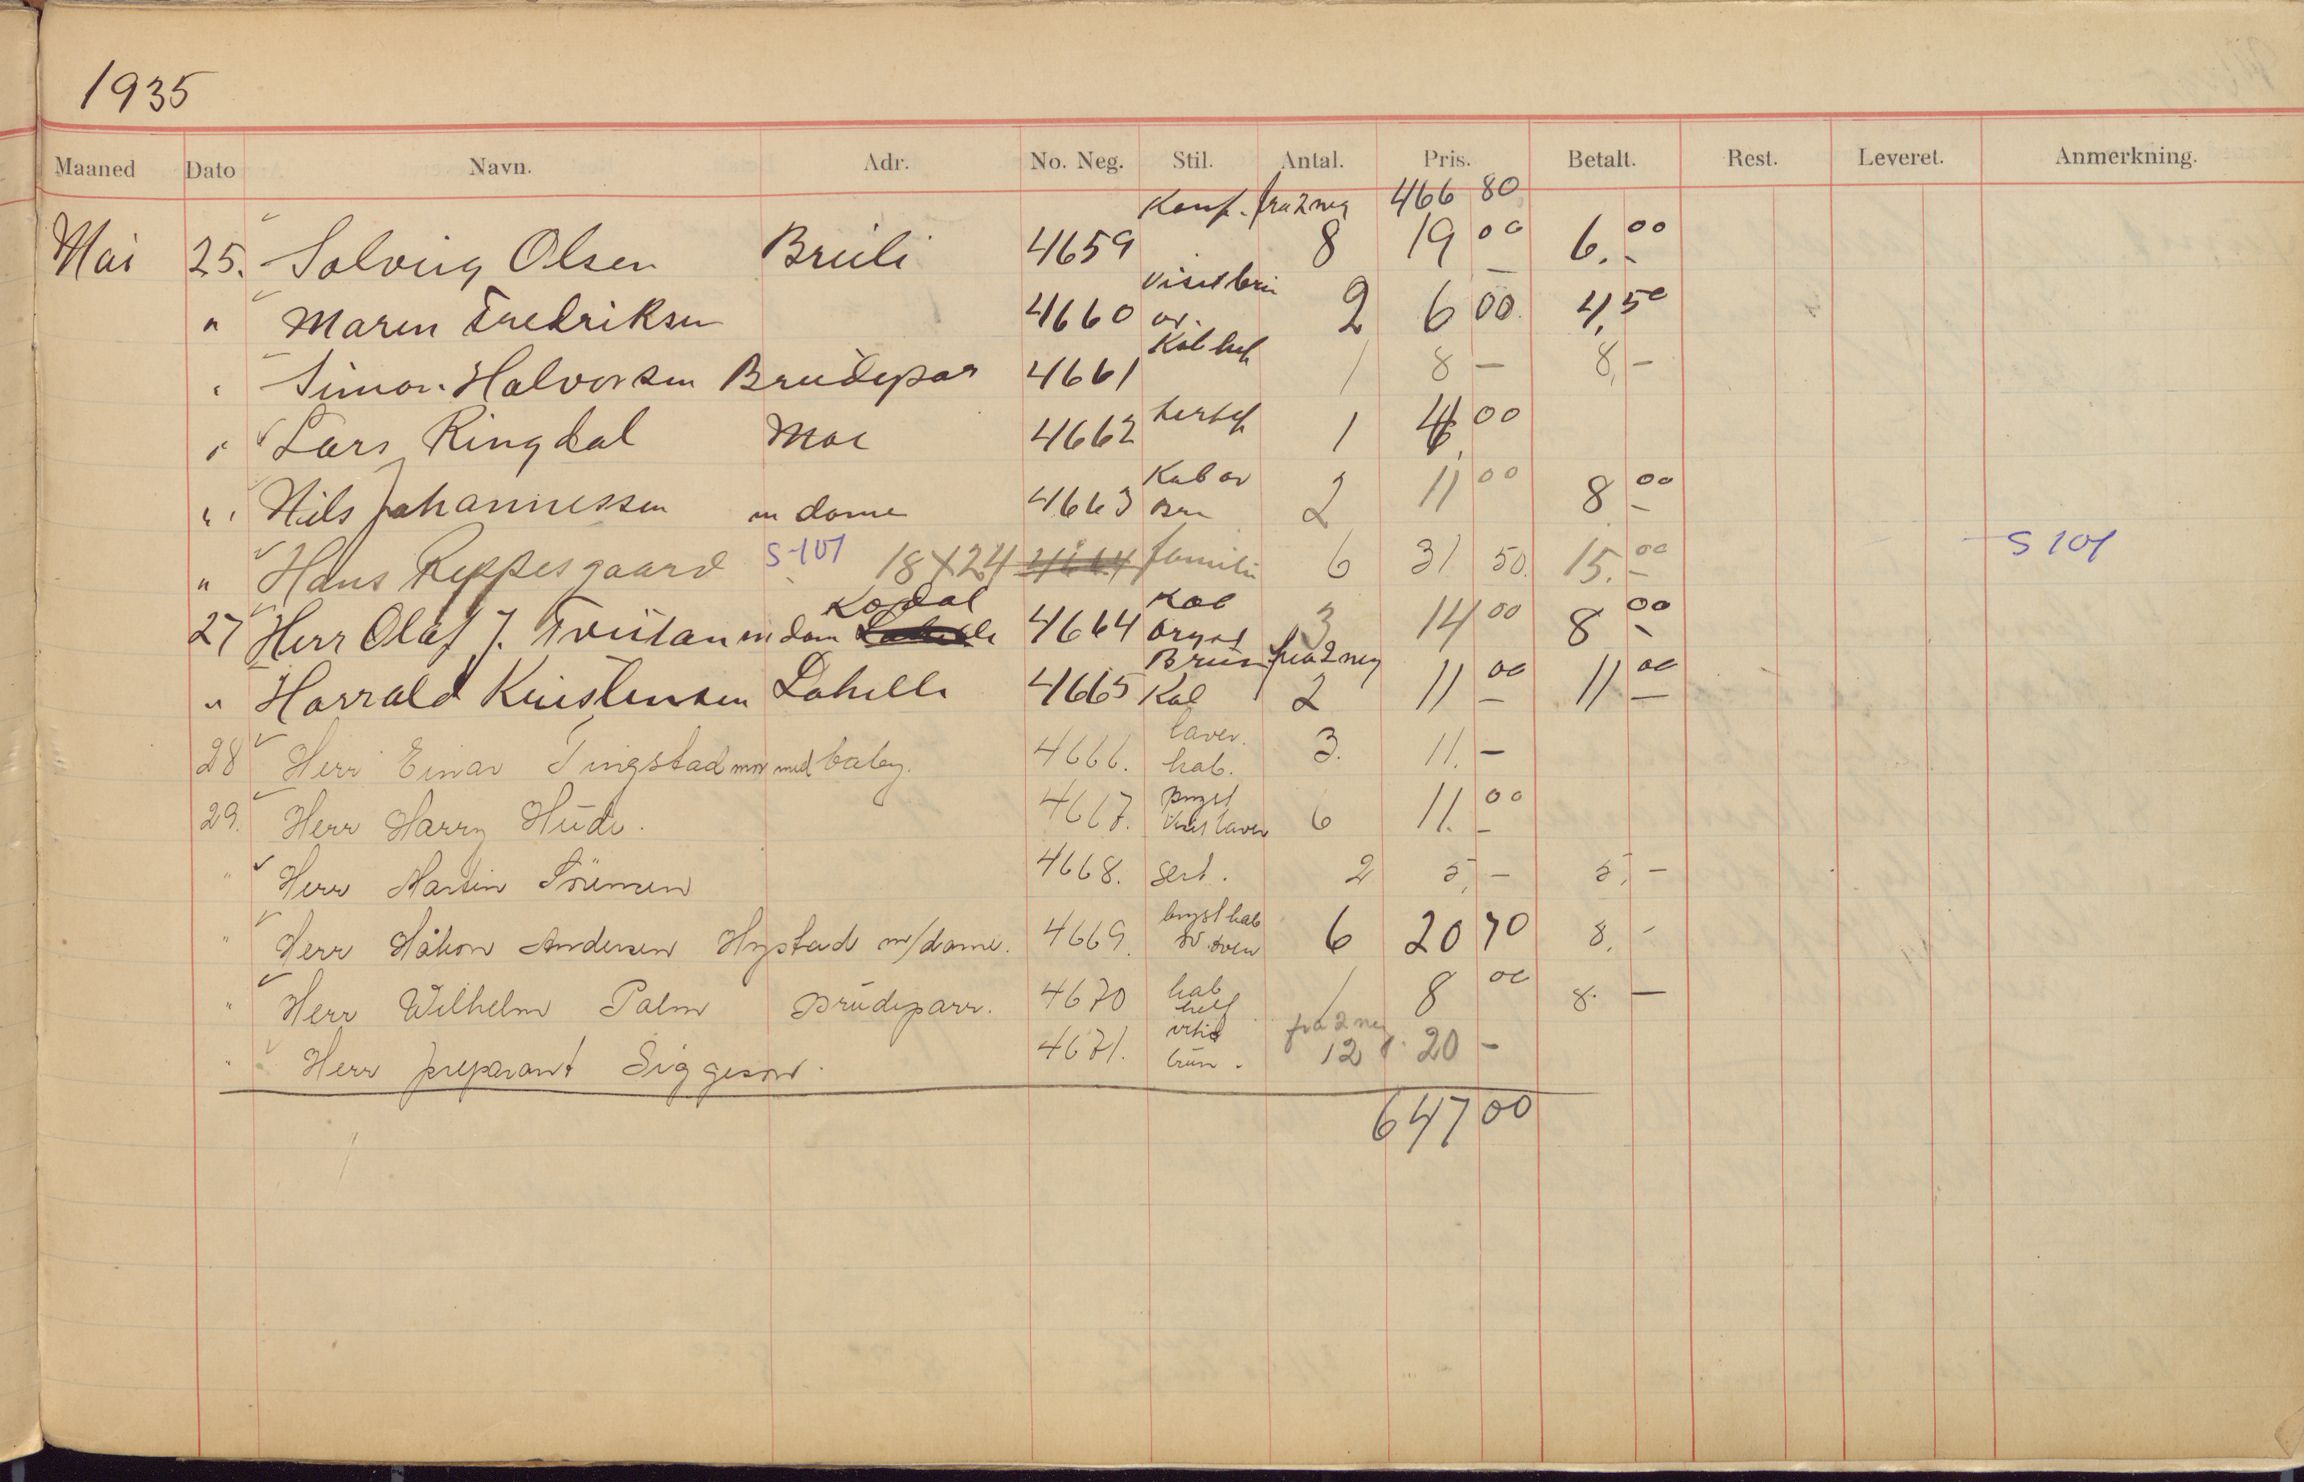 1935
Maaned Dato Navn. Adr. No. Neg. Stil. Antal. Pris. Betalt. Rest. Leveret. Anmerkning.
Konf. fra 2 neg 466 80
Mai 25. Solveig Olsen 4659 8 19 00 6.00
" Maren Fredriksen 4660 Visit 2 6 00 4,50
" Simon Halvorsen Brudepar 4661 Kab 1 8 – 8,–
" Lars Ringdal Moe 4662 1 00
" Nils Johannessen m dame 4663 Kab 2 11 00 8 00
" Hans Reppesgaard S-101 18X24 familie 6 31 50. 15.00 S 101
27 Herr Olaf J. m dam Kodal 4664 Kab 3 14 00 8 00
" Harrald Kristensen 4665 Brun Kab fra 2 neg 2 11 00 11 00
28 Herr Einar Tingstad mor med baby. 4666. kab. 3. 11. –
29. Herr Harry 4667. 6 11. 00
" Herr Martin 4668. sert. 2 5,– 5,–
" Herr Håkon Andersen Hystad m/dame. 4669. bryst kab 6 20 70 8,–
" Herr Wilhelm Palm Brudeparr. 4670 kab 1 8 00 8. –
" Herr preparant Siggeson. 4671. brun. fra 2 neg 12 20 –
647 00